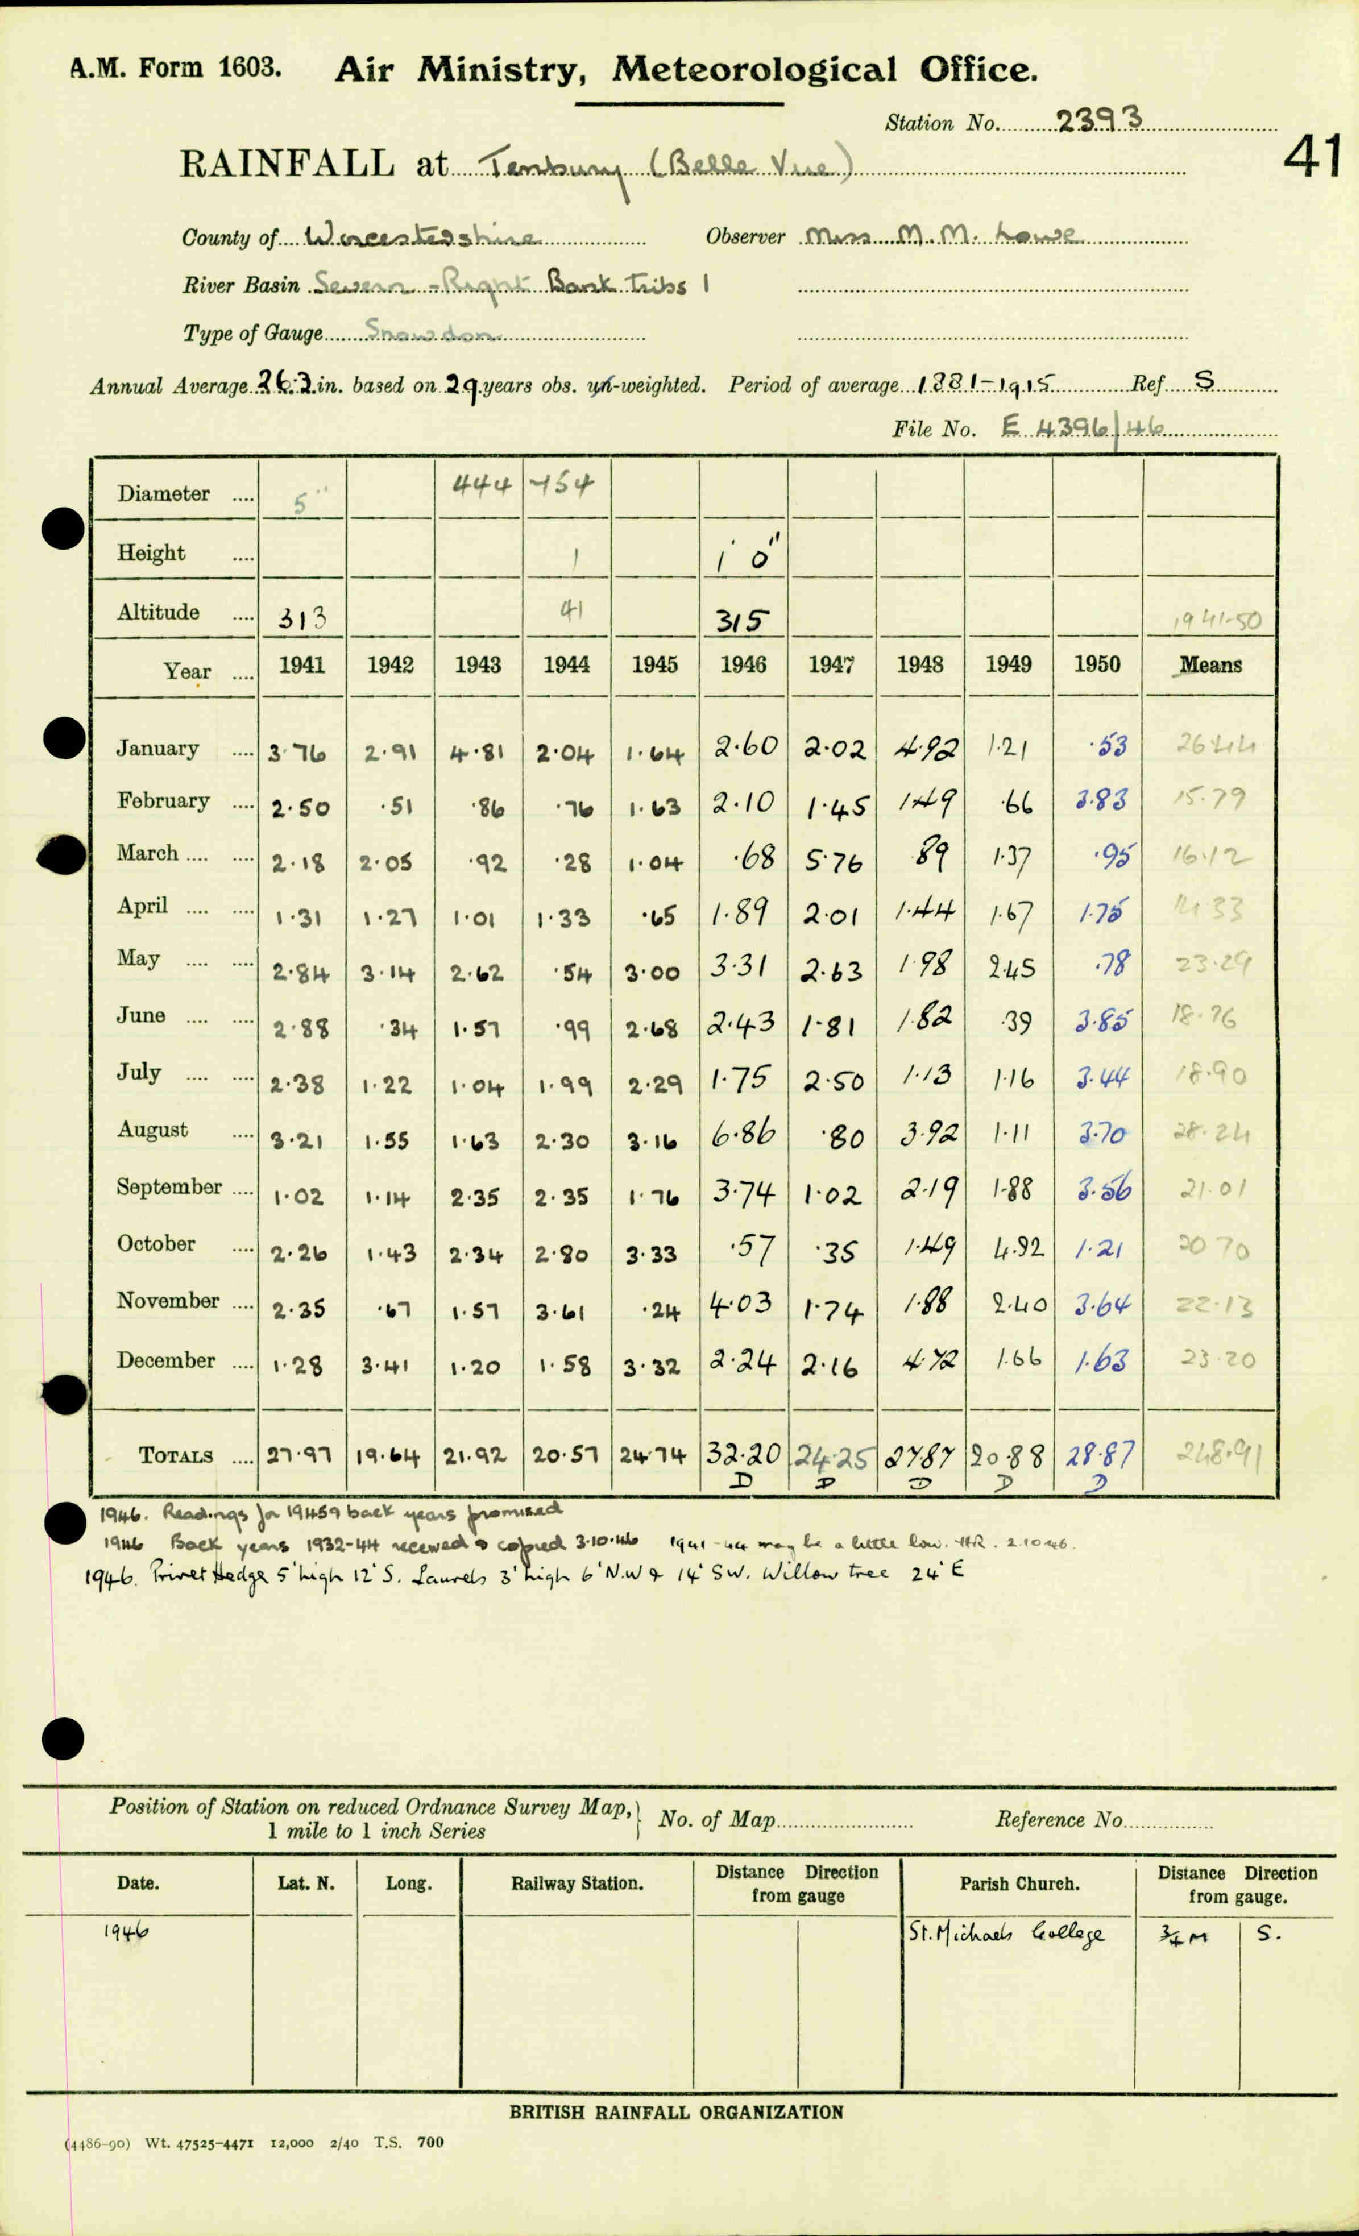 A.M. Form 1603. Air Ministry, Meteorological Office.
Station No. 2393
41
RAINFALL at Tenbury (Belle Vue)
County of Worcestershire Observer Miss M.M. Lowe
River Basin Severn - Right Bank Tribs 1
Type of Gauge Snowdon
Annual Average 26.3 in. based on 29 years obs. un-weighted. Period of average 1881-1915 Ref S
File No. E 4396/46
Diameter .... 5" 444 754
Height .... 1 1' 0"
Altitude .... 313 41 315 1941-50
Year .... 1941 1942 1943 1944 1945 1946 1947 1948 1949 1950 Means
January .... 3.76 2.91 4.81 2.04 1.64 2.60 2.02 4.92 1.21 .53 26.44
February .... 2.50 .51 .86 .76 1.63 2.10 1.45 1.49 .66 3.83 15.79
March .... .... 2.18 2.05 .92 .28 1.04 .68 5.76 .89 1.37 .95 16.12
April .... .... 1.31 1.27 1.01 1.33 .65 1.89 2.01 1.44 1.67 1.75 14.33
May .... .... 2.84 3.14 2.62 .54 3.00 3.31 2.63 1.98 2.45 .78 23.29
June .... .... 2.88 .34 1.57 .99 2.68 2.43 1.81 1.82 .39 3.85 18.76
July .... .... 2.38 1.22 1.04 1.99 2.29 1.75 2.50 1.13 1.16 3.44 18.90
August .... 3.21 1.55 1.63 2.30 3.16 6.86 .80 3.92 1.11 3.70 28.24
September .... 1.02 1.14 2.35 2.35 1.76 3.74 1.02 2.19 1.88 3.56 21.01
October .... 2.26 1.43 2.34 2.80 3.33 .57 .35 1.49 4.92 1.21 20.70
November .... 2.35 .67 1.57 3.61 .24 4.03 1.74 1.88 2.40 3.64 22.13
December .... 1.28 3.41 1.20 1.58 3.32 2.24 2.16 4.72 1.66 1.63 23.20
TOTALS .... 27.97 19.64 21.92 20.57 24.74 32.20 24.25 27.87 20.88 28.87 248.91
D D D D D
1946. Readings for 1945 & back years promised
1946 Back years 1932-44 received & copied 3.10.46 1941-44 may be a little low. HR. 2.10.46.
1946. Privet Hedge 5' high 12' S. Laurels 3' high 6' N.W & 14' SW. Willow tree 24' E
Position of Station on reduced Ordnance Survey Map, 1 mile to 1 inch Series } No. of Map Reference No
Date. Lat. N. Long. Railway Station. Distance Direction from gauge Parish Church. Distance Direction from gauge.
1946 St. Michaels College 3/4 M S.
BRITISH RAINFALL ORGANIZATION
(4486-90) Wt. 47525-4471 12,000 2/40 T.S. 700